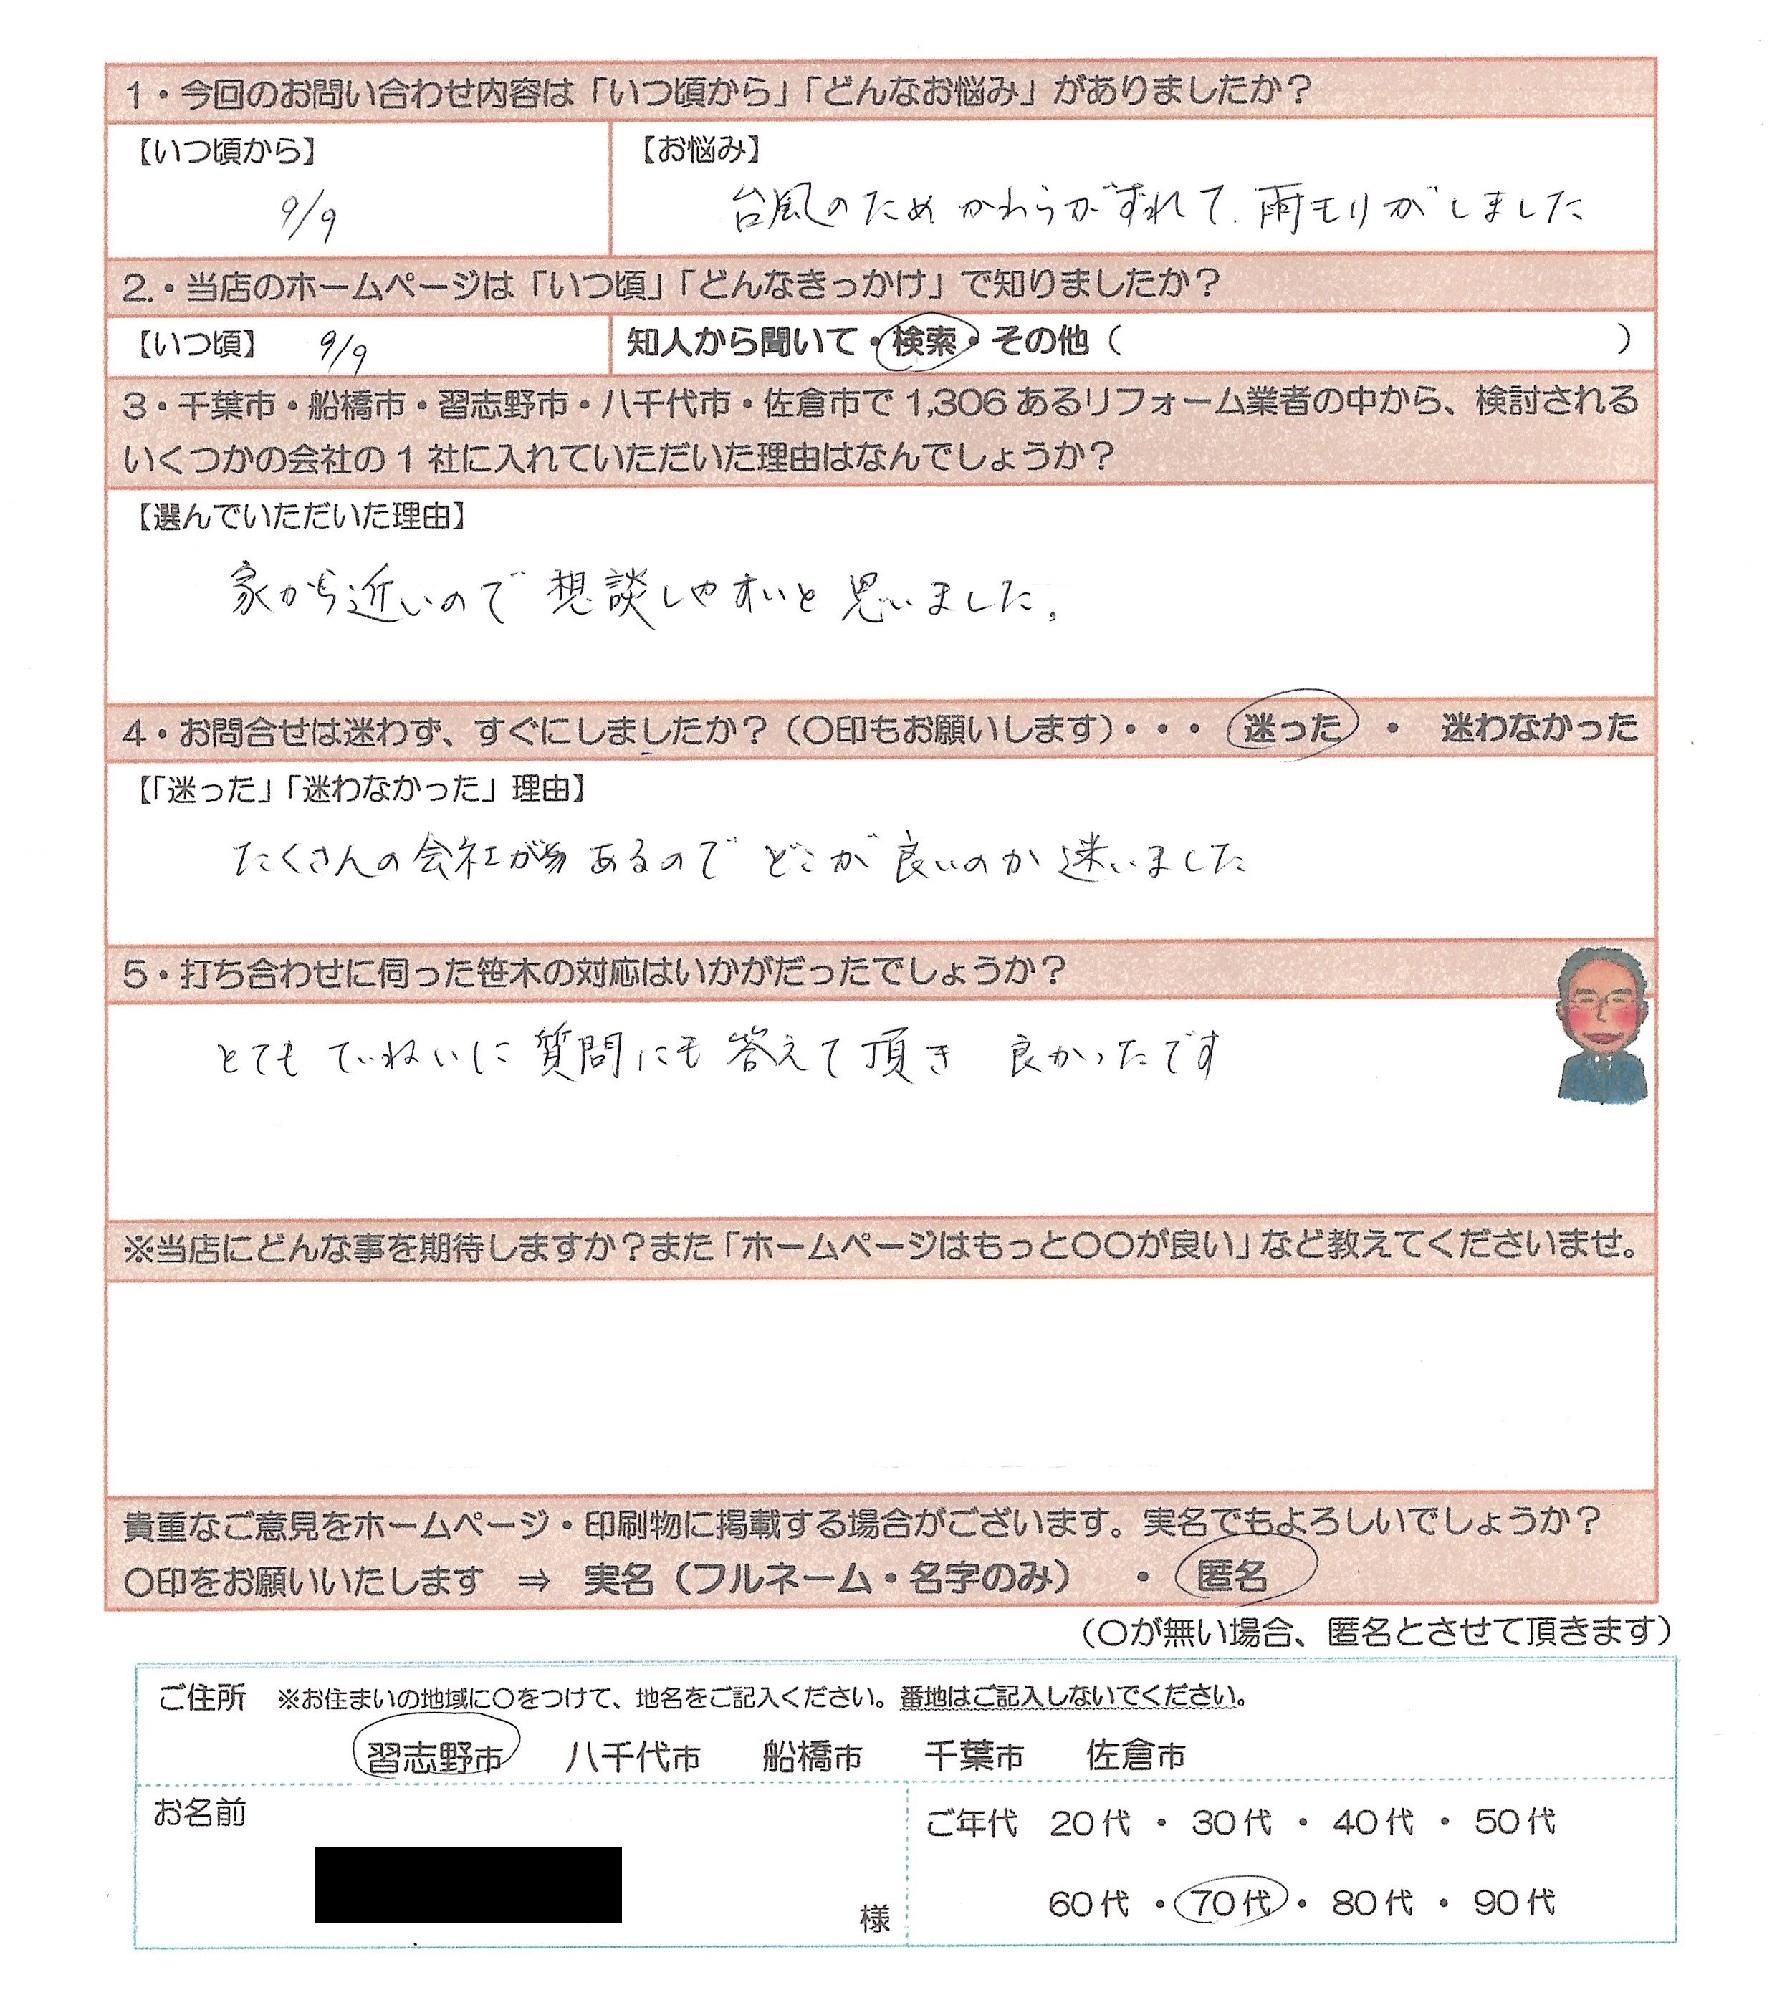 1・今回のお問い合わせ内容は「いつ頃から」「どんなお悩み」がありましたか？
【いつ頃から】
9/9
【お悩み】
台風のため かわらがずれて、雨モリがしました
2.・当店のホームページは「いつ頃」「どんなきっかけ」で知りましたか？
【いつ頃】 9/9
知人から聞いて・検索・その他（ ）
3・千葉市・船橋市・習志野市・八千代市・佐倉市で1,306あるリフォーム業者の中から、検討される
いくつかの会社の1社に入れていただいた理由はなんでしょうか？
【選んでいただいた理由】
家から近いので 想談しやすいと 思いました。
4・お問合せは迷わず、すぐにしましたか？（〇印もお願いします）・・・ 迷った ・ 迷わなかった
【「迷った」「迷わなかった」理由】
たくさんの会社が あるので どこが 良いのか 迷いました
5・打ち合わせに伺った笹木の対応はいかがだったでしょうか？
とても ていねいに 質問にも 答えて頂き 良かったです
※当店にどんな事を期待しますか？また「ホームページはもっと〇〇が良い」など教えてくださいませ。
貴重なご意見をホームページ・印刷物に掲載する場合がございます。実名でもよろしいでしょうか？
〇印をお願いいたします ⇒ 実名（フルネーム・名字のみ） ・ 匿名
（〇が無い場合、匿名とさせて頂きます）
ご住所 ※お住まいの地域に〇をつけて、地名をご記入ください。番地はご記入しないでください。
習志野市 八千代市 船橋市 千葉市 佐倉市
お名前
様
ご年代 20代 ・ 30代 ・ 40代 ・ 50代
60代 ・ 70代 ・ 80代 ・ 90代